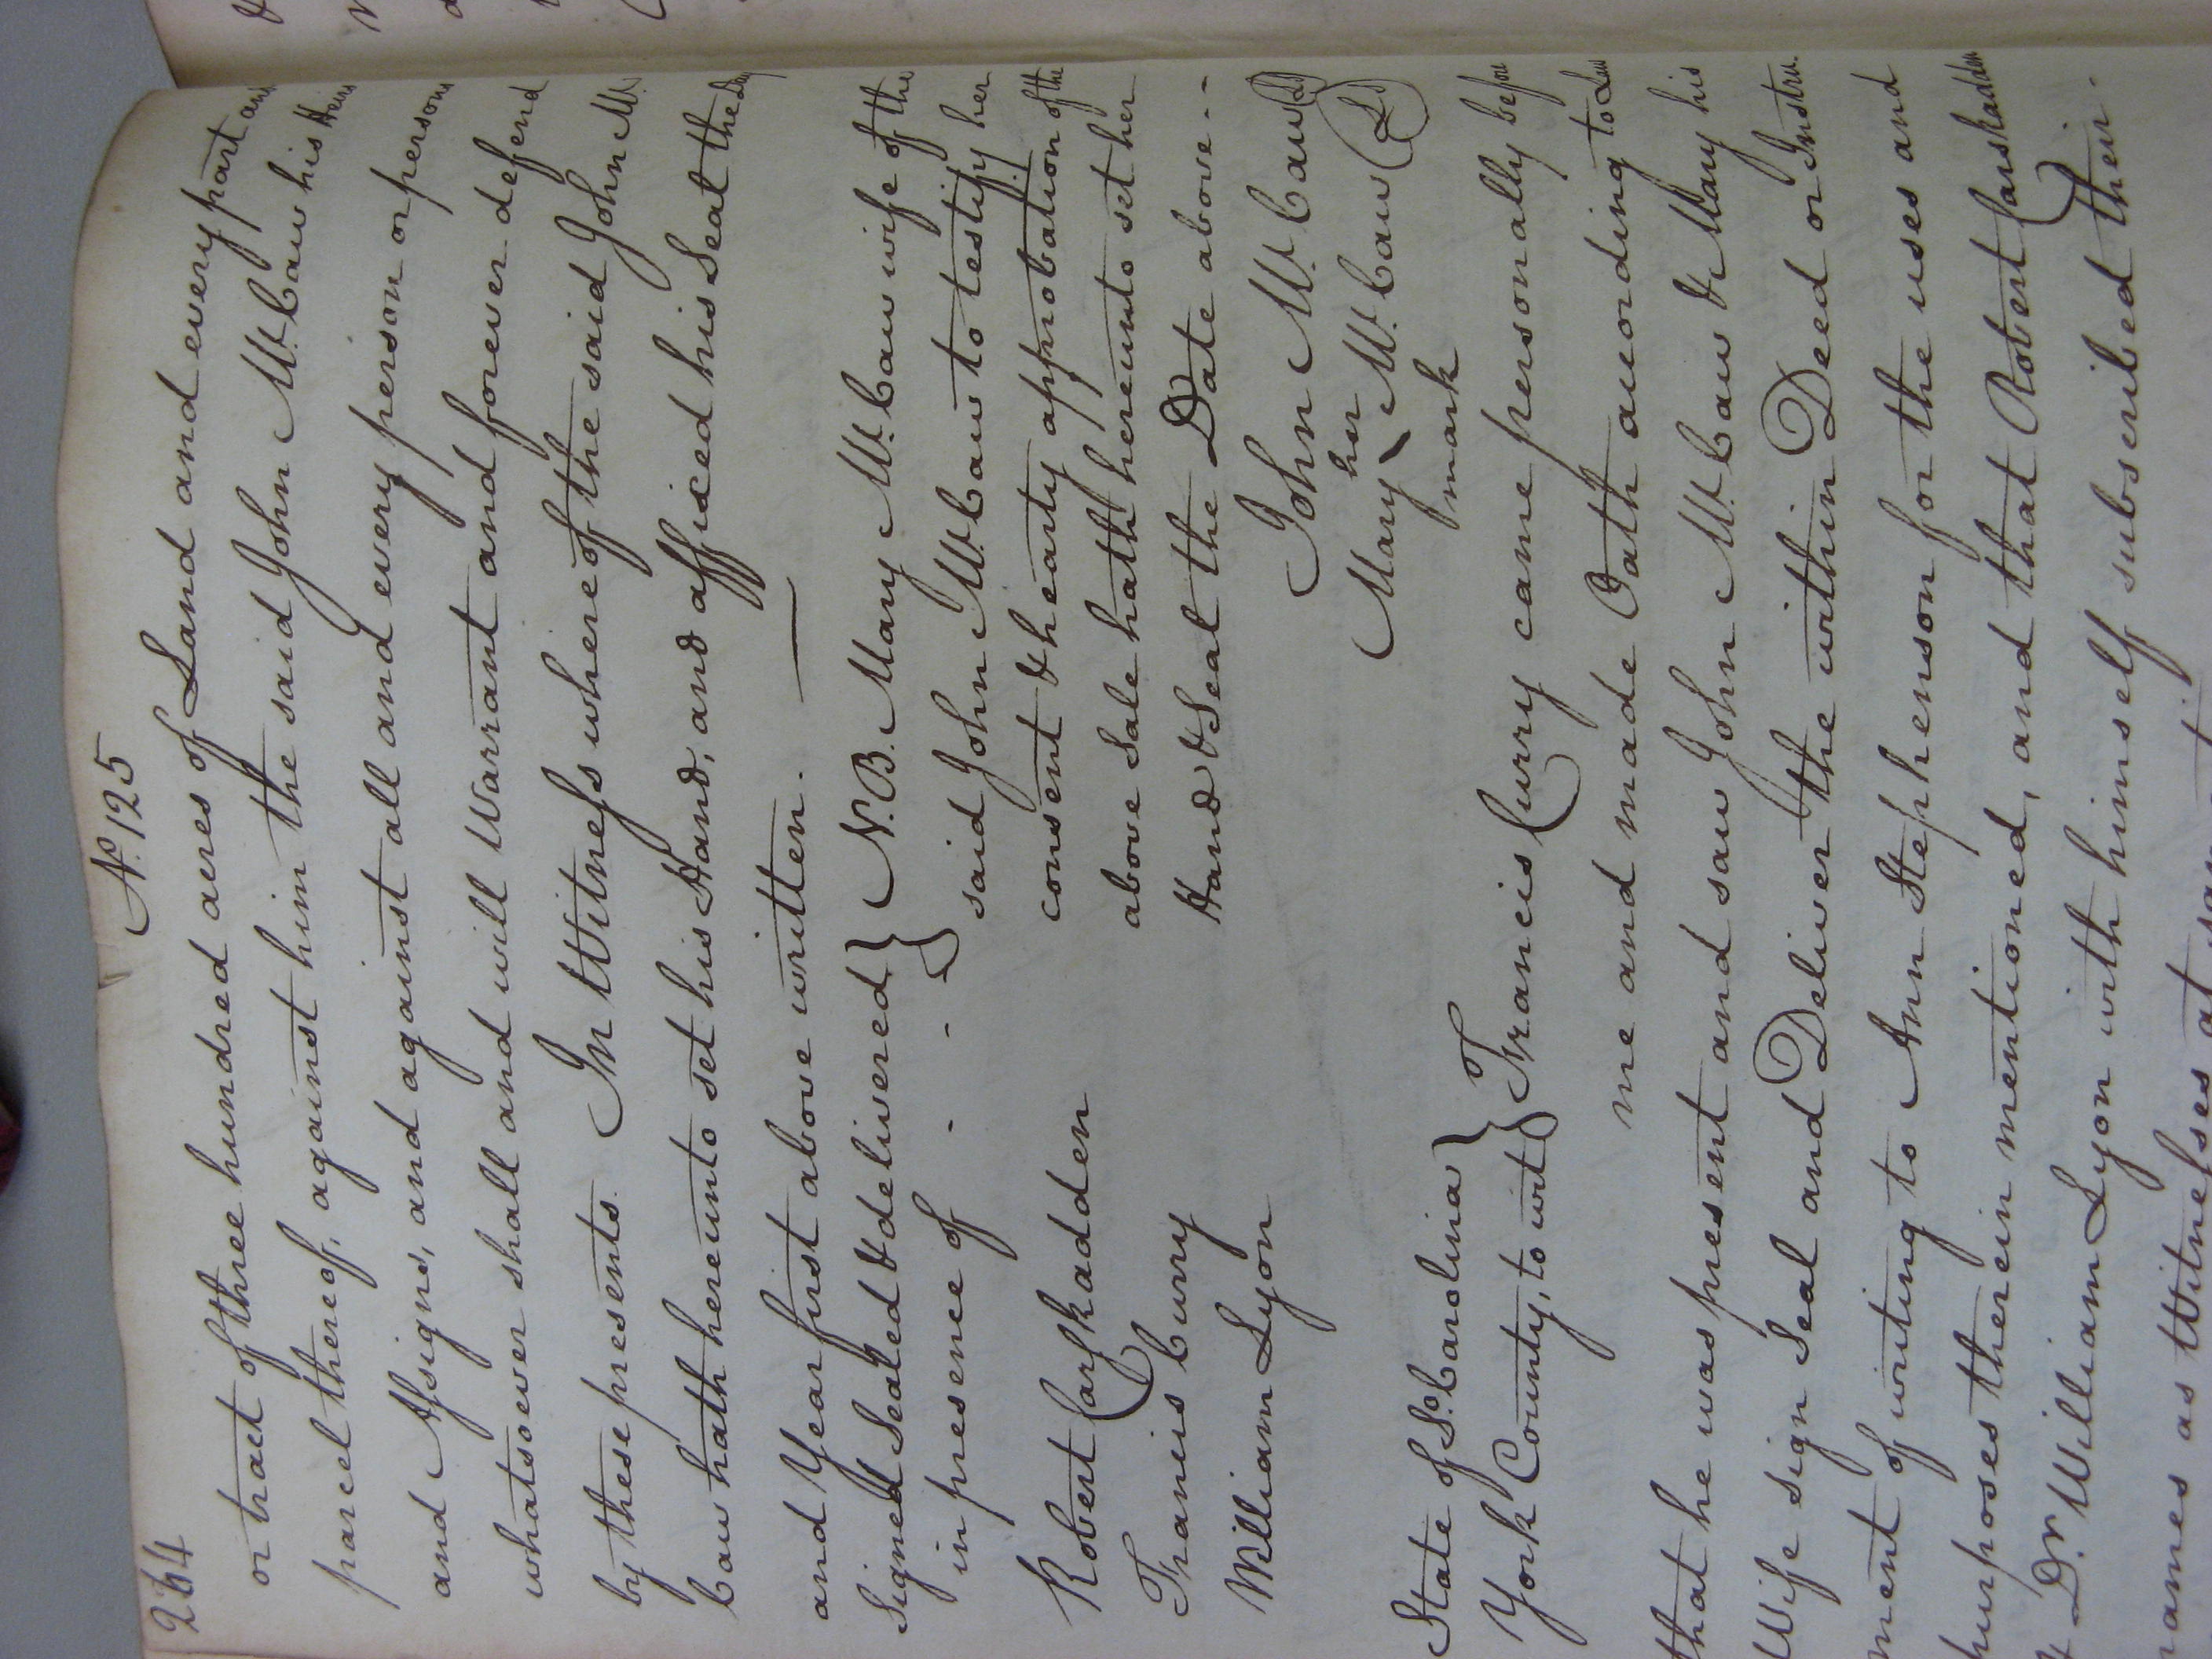 264
No. 125
or tract of three hundred acres of Land and every part and
parcel thereof, against him the said John McCaw his Heirs
and Assigns, and against all and every person or persons
whatsoever shall and will Warrant and forever defend
by these presents. In Witness whereof the said John Mc.
Caw hath hereunto set his Hand, and afficed his Seal the Day
and Year first above written.
Signed Sealed & delivered } N.B. Mary McCaw wife of the
in presence of - - said John McCaw to testify her
consent & hearty approbation of the
Robert Caskadden above Sale hath hereunto set her
Francis Curry Hand & Seal the Date above--
William Lyon John McCaw (LS)
her
Mary McCaw (LS)
mark
State of So. Carolina }
York County, to wit } Francis Curry came personally before
me and made Oath according to Law
that he was present and saw John McCaw & Mary his
Wife sign Seal and Deliver the within Deed or Instru
ment of writing to Ann Stephenson for the uses and
purposes therein mentioned, and that Robert Caskadden
& Dr. William Lyon with himself subscribed their
names as Witnesses at